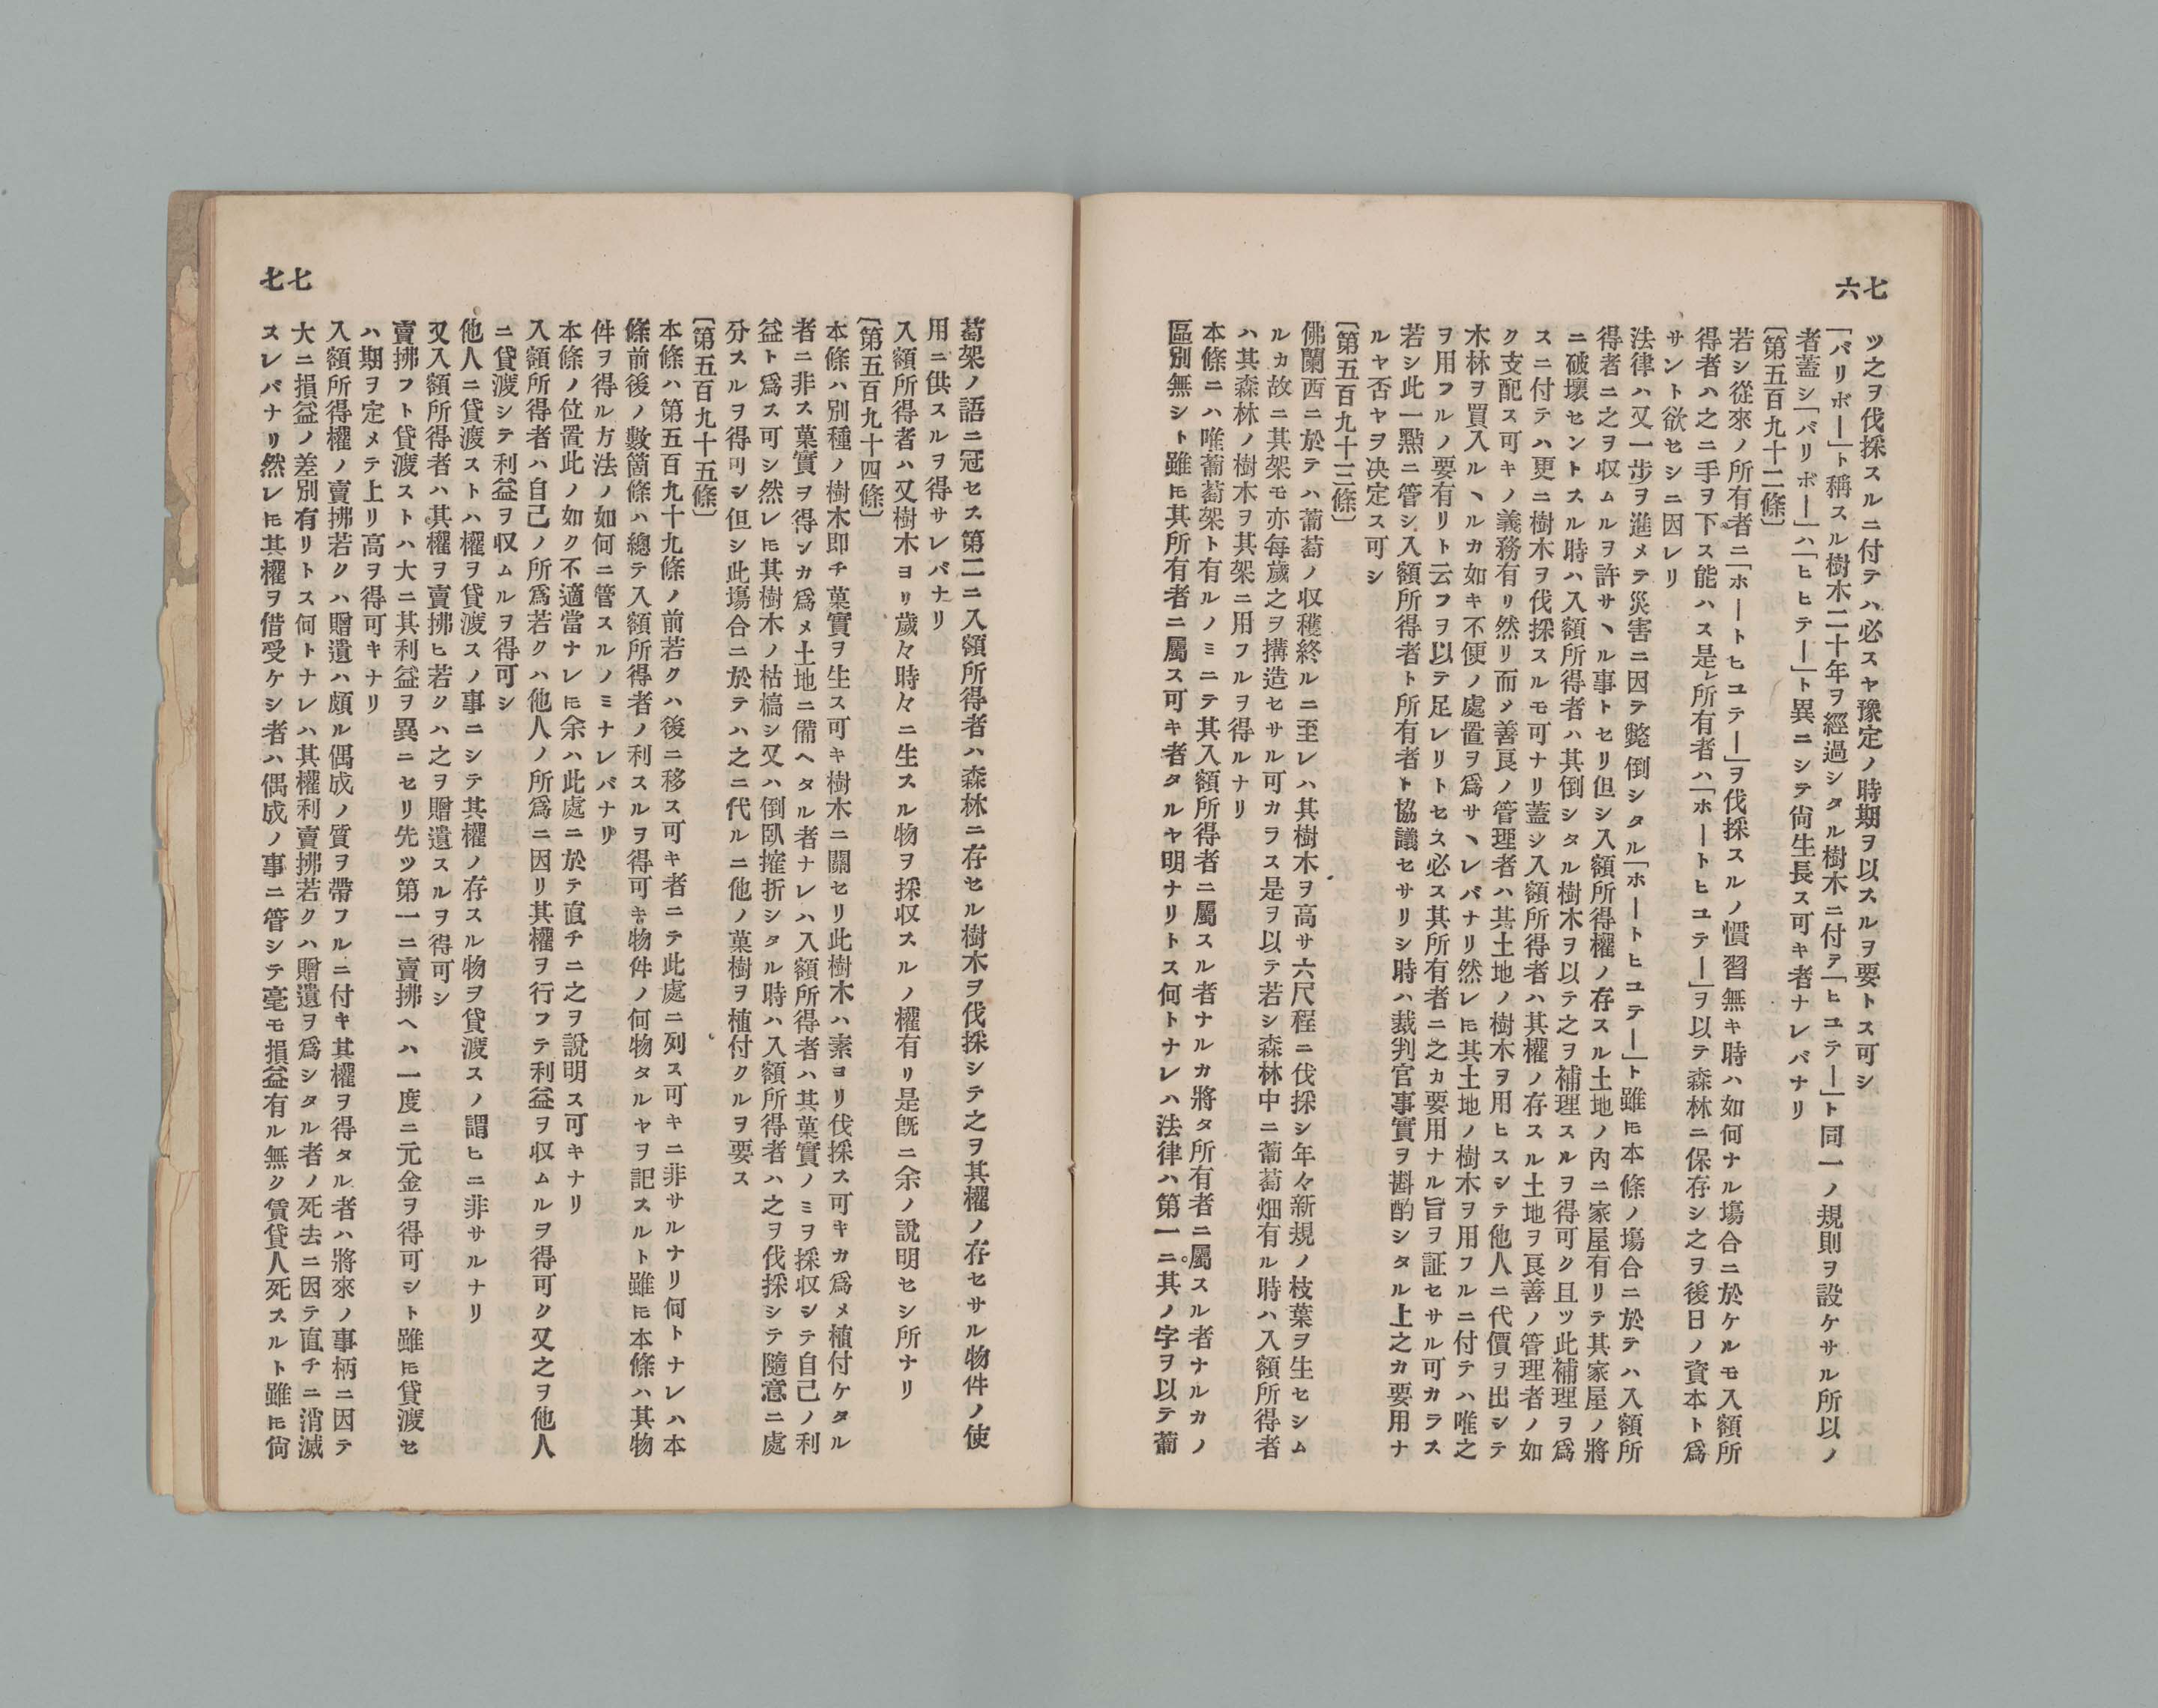 七六
ツ之ヲ伐採スルニ付テハ必スヤ豫定ノ時期ヲ以スルヲ要トス可シ
「バリボー」ト稱スル樹木二十年ヲ經過シタル樹木ニ付テ「ヒユテー」ト同一ノ規則ヲ設ケサル所以ノ
者蓋シ「バリボー」ハ「ヒヒテー」ト異ニシテ尙生長ス可キ者ナレバナリ
〔第五百九十二條〕
若シ從來ノ所有者ニ「ホートヒユテー」ヲ伐採スルノ慣習無キ時ハ如何ナル塲合ニ於ケルモ入額所
得者ハ之ニ手ヲ下ス能ハス是レ所有者ハ「ホートヒユテー」ヲ以テ森林ニ保存シ之ヲ後日ノ資本ト爲
サント欲セシニ因レリ
法律ハ又一步ヲ進メテ災害ニ因テ斃倒シタル「ホートヒユテー」ト雖𪜈本條ノ塲合ニ於テハ入額所
得者ニ之ヲ収ムルヲ許サヽル事トセリ但シ入額所得權ノ存スル土地ノ內ニ家屋有リテ其家屋ノ將
ニ破壞セントスル時ハ入額所得者ハ其倒シタル樹木ヲ以テ之ヲ補理スルヲ得可ク且ツ此補理ヲ爲
スニ付テハ更ニ樹木ヲ伐採スルモ可ナリ蓋シ入額所得者ハ其權ノ存スル土地ヲ良善ノ管理者ノ如
ク支配ス可キノ義務有リ然リ而ノ善良ノ管理者ハ其土地ノ樹木ヲ用ヒスシテ他人ニ代價ヲ出シテ
木林ヲ買入ルヽルカ如キ不便ノ處置ヲ爲サヽレバナリ然レ𪜈其土地ノ樹木ヲ用フルニ付テハ唯之
ヲ用フルノ要有リト云フヲ以テ足レリトセス必ス其所有者ニ之カ要用ナル旨ヲ証セサル可カラス
若シ此一點ニ管シ入額所得者ト所有者ト協議セサリシ時ハ裁判官事實ヲ斟酌シタル上之カ要用ナ
ルヤ否ヤヲ決定ス可シ
〔第五百九十三條〕
佛蘭西ニ於テハ葡萄ノ収穫終ルニ至レハ其樹木ヲ高サ六尺程ニ伐採シ年々新規ノ枝葉ヲ生セシム
ルカ故ニ其架モ亦每歲之ヲ搆造セサル可カラス是ヲ以テ若シ森林中ニ葡萄畑有ル時ハ入額所得者
ハ其森林ノ樹木ヲ其架ニ用フルヲ得ルナリ
本條ニハ唯葡萄架ト有ルノミニテ其入額所得者ニ屬スル者ナルカ將タ所有者ニ屬スル者ナルカノ
區別無シト雖𪜈其所有者ニ屬ス可キ者タルヤ明ナリトス何トナレハ法律ハ第一ニ其ノ字ヲ以テ葡
七七
萄架ノ語ニ冠セス第二ニ入額所得者ハ森林ニ存セル樹木ヲ伐採シテ之ヲ其權ノ存セサル物件ノ使
用ニ供スルヲ得サレバナリ
入額所得者ハ又樹木ヨリ歲々時々ニ生スル物ヲ採収スルノ權有リ是旣ニ余ノ說明セシ所ナリ
〔第五百九十四條〕
本條ハ別種ノ樹木即チ菓實ヲ生ス可キ樹木ニ關セリ此樹木ハ素ヨリ伐採ス可キカ爲メ植付ケタル
者ニ非ス菓實ヲ得ンカ爲メ土地ニ備ヘタル者ナレハ入額所得者ハ其菓實ノミヲ採収シテ自己ノ利
益ト爲ス可シ然レ𪜈其樹木ノ枯槁シ又ハ倒臥摧折シタル時ハ入額所得者ハ之ヲ伐採シテ隨意ニ處
分スルヲ得可シ但シ此塲合ニ於テハ之ニ代ルニ他ノ菓樹ヲ植付クルヲ要ス
〔第五百九十五條〕
本條ハ第五百九十九條ノ前若クハ後ニ移ス可キ者ニテ此處ニ列ス可キニ非サルナリ何トナレハ本
條前後ノ數箇條ハ總テ入額所得者ノ利スルヲ得可キ物件ノ何物タルヤヲ記スルト雖𪜈本條ハ其物
件ヲ得ル方法ノ如何ニ管スルノミナレバナリ
本條ノ位置此ノ如ク不適當ナレ𪜈余ハ此處ニ於テ直チニ之ヲ說明ス可キナリ
入額所得者ハ自己ノ所爲若クハ他人ノ所爲ニ因リ其權ヲ行フテ利益ヲ収ムルヲ得可ク又之ヲ他人
ニ貸渡シテ利益ヲ収ムルヲ得可シ
他人ニ貸渡ストハ權ヲ貸渡スノ事ニシテ其權ノ存スル物ヲ貸渡スノ謂ヒニ非サルナリ
又入額所得者ハ其權ヲ賣拂ヒ若クハ之ヲ贈遺スルヲ得可シ
賣拂フト貸渡ストハ大ニ其利益ヲ異ニセリ先ツ第一ニ賣拂ヘハ一度ニ元金ヲ得可シト雖𪜈貸渡セ
ハ期ヲ定メテ上リ高ヲ得可キナリ
入額所得權ノ賣拂若クハ贈遺ハ頗ル偶成ノ質ヲ帶フルニ付キ其權ヲ得タル者ハ將來ノ事柄ニ因テ
大ニ損益ノ差別有リトス何トナレハ其權利賣拂若クハ贈遺ヲ爲シタル者ノ死去ニ因テ直チニ消滅
スレバナリ然レ𪜈其權ヲ借受ケシ者ハ偶成ノ事ニ管シテ毫モ損益有ル無ク賃貸人死スルト雖𪜈尙